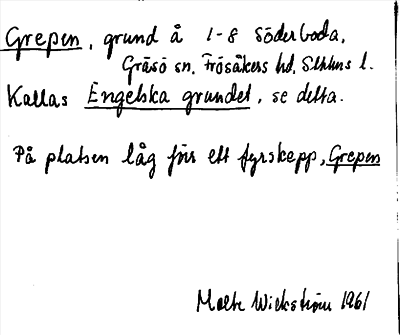 Grepen, grund å 1-8 Söderboda,
Gräsö sn, Frösåkers hd, Sthlms l.
Kallas Engelska grundet, se detta.
På platsen låg förr ett fyrskepp, Grepen
Malte Wickström 1961